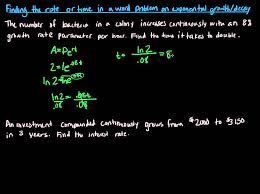 Finding the rate or time in a word problem on exponential growth/decay
The number of bacteria in a colony increases continuously with an 8%
growth rate parameter per hour. Find the time it takes to double.
A=Pe^rt
2=1e^.08t
ln2=lne^.08t
ln2/.08=.08t/.08
t=ln2/.08=8.
An investment compounded continuously grows from $2000 to $3150
in 3 years. Find the interest rate.